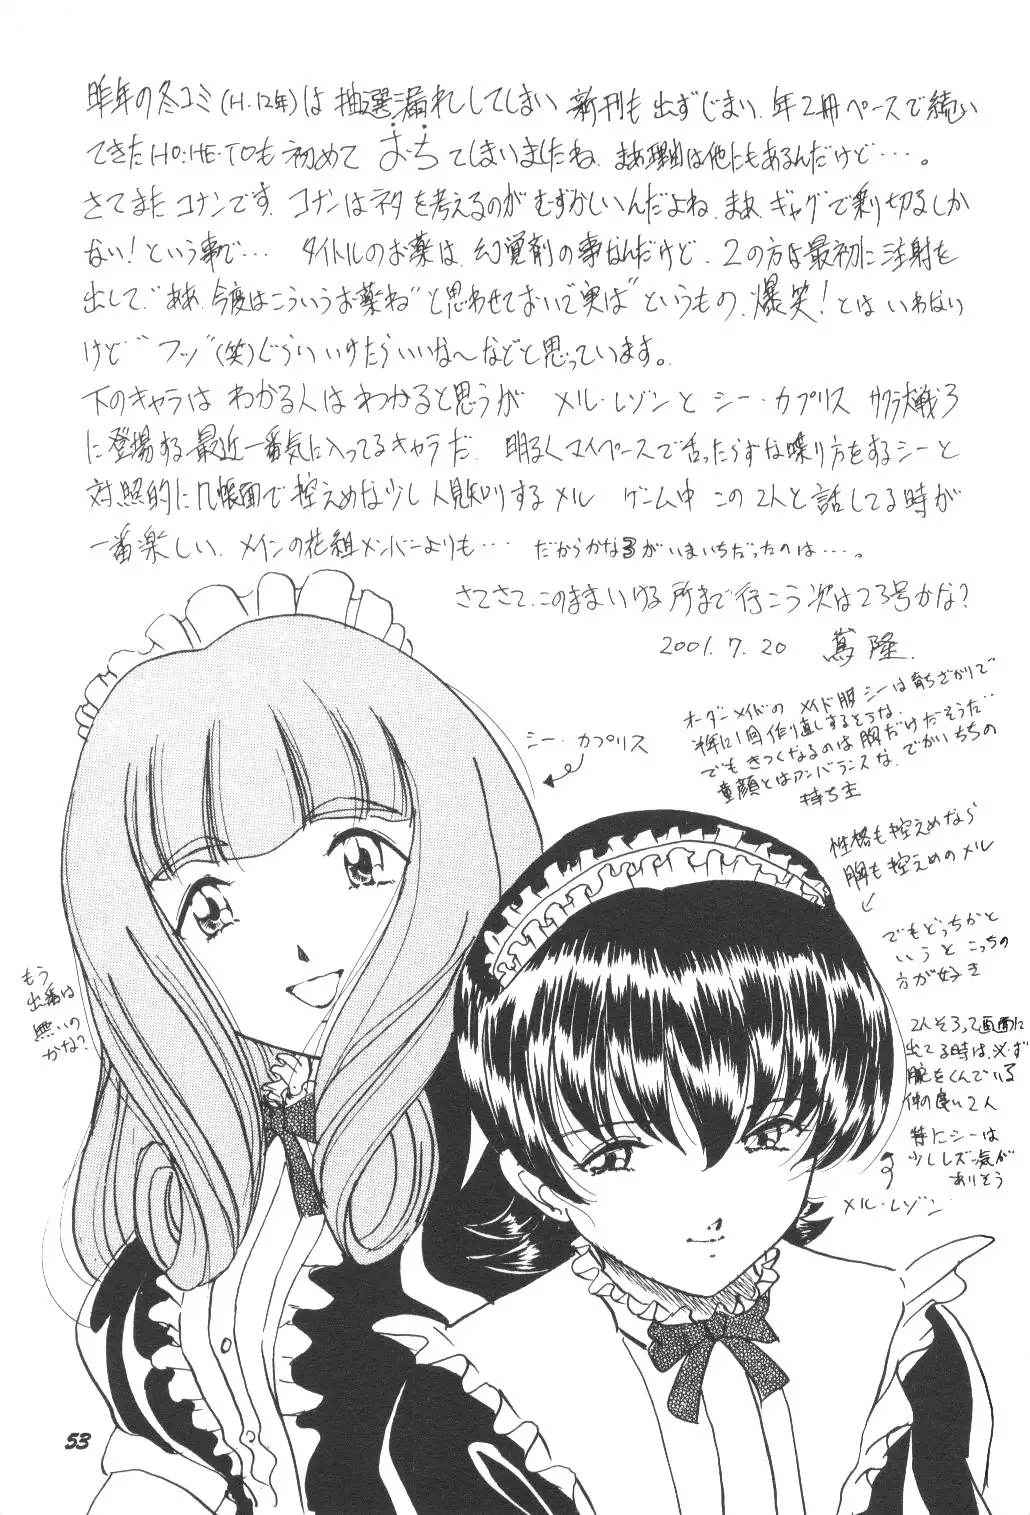 昨年の冬コミ(H.12年)は抽選漏れしてしまい 新刊も出ずじまい、年2冊ペースで続い
てきたHO・HE・TOも初めて おちてしまいましたね、まあ理由は他にもあるんだけど…。
さてまたコナンです、コナンはネタを考えるのがむずかしいんだよね、まあギャグで乗り切るしか
ない!という事で… タイトルのお薬は、幻覚剤の事なんだけど、2の方は最初に注射を
出して、"ああ、今度はこういうお薬ね"と思わせておいて"実は"というもの、爆笑!とはいわない
けど"フッ"(笑)ぐらいいけたらいいな〜などと思っています。
下のキャラはわかる人はわかると思うが メル・レゾンとシー・カプリス サクラ大戦3
に登場する最近一番気に入ってるキャラだ、明るくマイペースで舌ったらずな喋り方をするシーと
対照的に几帳面で控えめな少し人見知りするメル ゲーム中この2人と話してる時が
一番楽しい、メインの花組メンバーよりも… だからかな3がいまいちだったのは…。
さてさて、このままいける所まで行こう次は23号かな?
2001.7.20 蔦隆.
オーダーメイドのメイド服 シーは育ちざかりで
半年に1回作り直しするとらな、
でもきつくなるのは胸だけだそうだ‥
童顔とはアンバランスな、でかいちちの
持ち主
シー・カプリス
性格も控えめなら
胸も控えめのメル
でもどっちかと
いうとこっちの
方が好き
もう
出番は
無いの
かな?
2人そろって画面に
出てる時は、必ず
腕をくんでいる
仲の良い2人
特にシーは
少しレズっ気が
ありそう
メル・レゾン
53